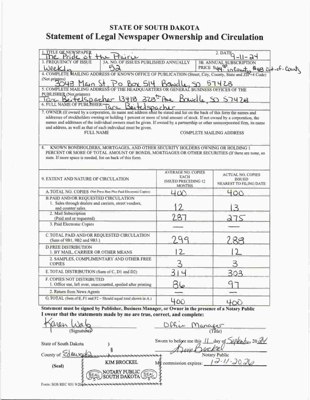 STATE OF SOUTH DAKOTA
Statement of Legal Newspaper Ownership and Circulation
1. TITLE OF NEWSPAPER
2. DATE
The Pride of the Prairie
9-11-24
3. FREQUENCY OF ISSUE
3A. NO. OF ISSUES PUBLISHED ANNUALLY
3B. ANNUAL SUBSCRIPTION
Weekly
52
PRICE
4. COMPLETE MAILING ADDRESS OF KNOWN OFFICE OF PUBLICATION (Street, City, County, State and ZIP+4 Code)
(Not printers)
3049 Main St PO Box 514 Bowdle, SD 57428
5. COMPLETE MAILING ADDRESS OF THE HEADQUARTERS OR GENERAL BUSINESS OFFICES OF THE
PUBLISHER (Not printers)
Tara Beitelspacher 328th Ave Bowdle, SD 57428
6. FULL NAME OF PUBLISHER:
Tara Beitelspacher
7. OWNER (If owned by a corporation, its name and address must be stated and also on the back of this form the names and
addresses of stockholders owning or holding 1 percent or more of total amount of stock. If not owned by a corporation, the
names and addresses of the individual owners must be given. If owned by a partnership or other unincorporated firm, its name
and address, as well as that of each individual must be given.
FULL NAME
COMPLETE MAILING ADDRESS
8. KNOWN BONDHOLDERS, MORTGAGES, AND OTHER SECURITY HOLDERS OWNING OR HOLDING 1
PERCENT OR MORE OF TOTAL AMOUNT OF BONDS, MORTGAGES OR OTHER SECURITIES (If there are none, so
state. If more space is needed, list on back of this form.
9. EXTENT AND NATURE OF CIRCULATION
AVERAGE NO. COPIES
EACH
ISSUED PRECEDING 12
MONTHS
ACTUAL NO. COPIES
ISSUED
NEAREST TO FILING DATE
A. TOTAL NO. COPIES (Net Press Run Plus Paid Electronic Copies)
400
400
B. PAID AND/OR REQUESTED CIRCULATION
1. Sales through dealers and carriers, street vendors,
and counter sales.
12
13
2. Mail Subscription
(Paid and/or requested)
287
275
3. Paid Electronic Copies
C. TOTAL PAID AND/OR REQUESTED CIRCULATION
(Sum of 9B1, 9B2 and 9B3.)
299
288
D. FREE DISTRIBUTION
1. BY MAIL, CARRIER OR OTHER MEANS
12
12
2. SAMPLES, COMPLIMENTARY AND OTHER FREE
COPIES
3
3
E. TOTAL DISTRIBUTION (Sum of C, D1 and D2)
314
303
F. COPIES NOT DISTRIBUTED
1. Office use, left over, unaccounted, spoiled after printing
86
97
2. Return from News Agents
G. TOTAL (Sum of E, F1 and F2 - Should equal total shown in A.)
400
400
Statement must be signed by Publisher, Business Manager, or Owner in the presence of a Notary Public
I swear that the statements made by me are true, correct, and complete:
Office Manager
(Signature)
(Title)
State of South Dakota
Sworn to before me this 11 day of September, 2024
County of
Kim Brockel
Notary Public
(Seal)
KIM BROCKEL
NOTARY PUBLIC
SOUTH DAKOTA
My commission expires: 12-11-2026